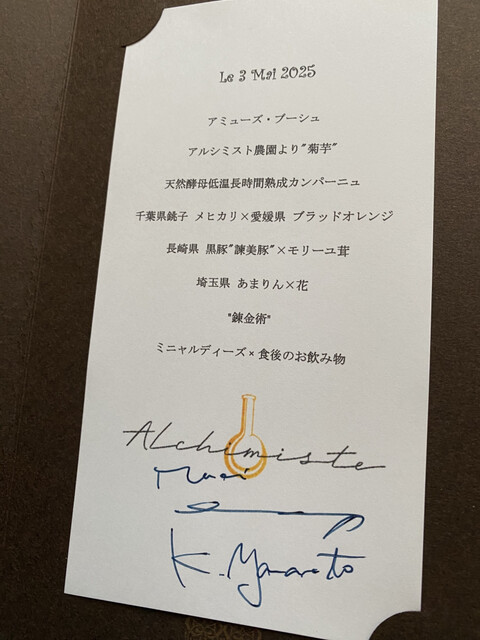 Le 3 Mai 2025
アミューズ・ブーシュ
アルシミスト農園より"菊芋"
天然酵母低温長時間熟成カンパーニュ
千葉県銚子 メヒカリ×愛媛県 ブラッドオレンジ
長崎県 黒豚"諫美豚"×モリーユ茸
埼玉県 あまりん×花
"錬金術"
ミニャルディーズ×食後のお飲み物
Alchimiste
K. Yamamoto